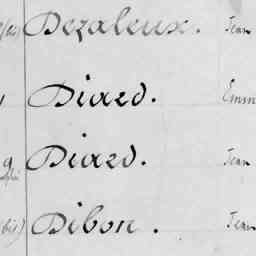 Dezaleux. Jean
Diard. Emm
9 Diard. Jean
bis) Dibon. Jean